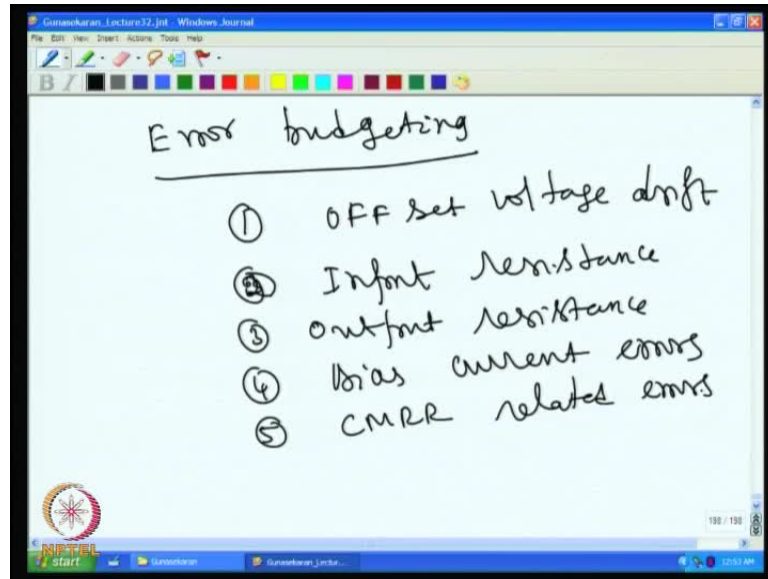 Gunasekaran_Lecture32.jnt - Windows Journal
File Edit View Insert Actions Tools Help
B I
Error budgeting
① OFF set voltage drift
② Input resistance
③ Output resistance
④ Bias current errors
⑤ CMRR related errors
198 / 198
NPTEL
start Gunasekaran Gunasekaran_Lectur... 12:53 AM